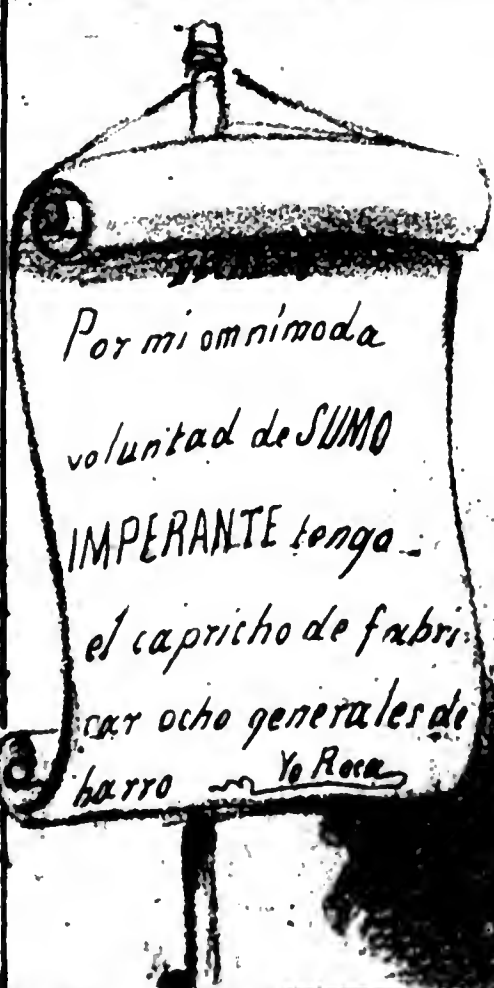 Por mi omnímoda
voluntad de SUMO
IMPERANTE tengo
el capricho de fabri-
car ocho generales de
barro Yo Roca